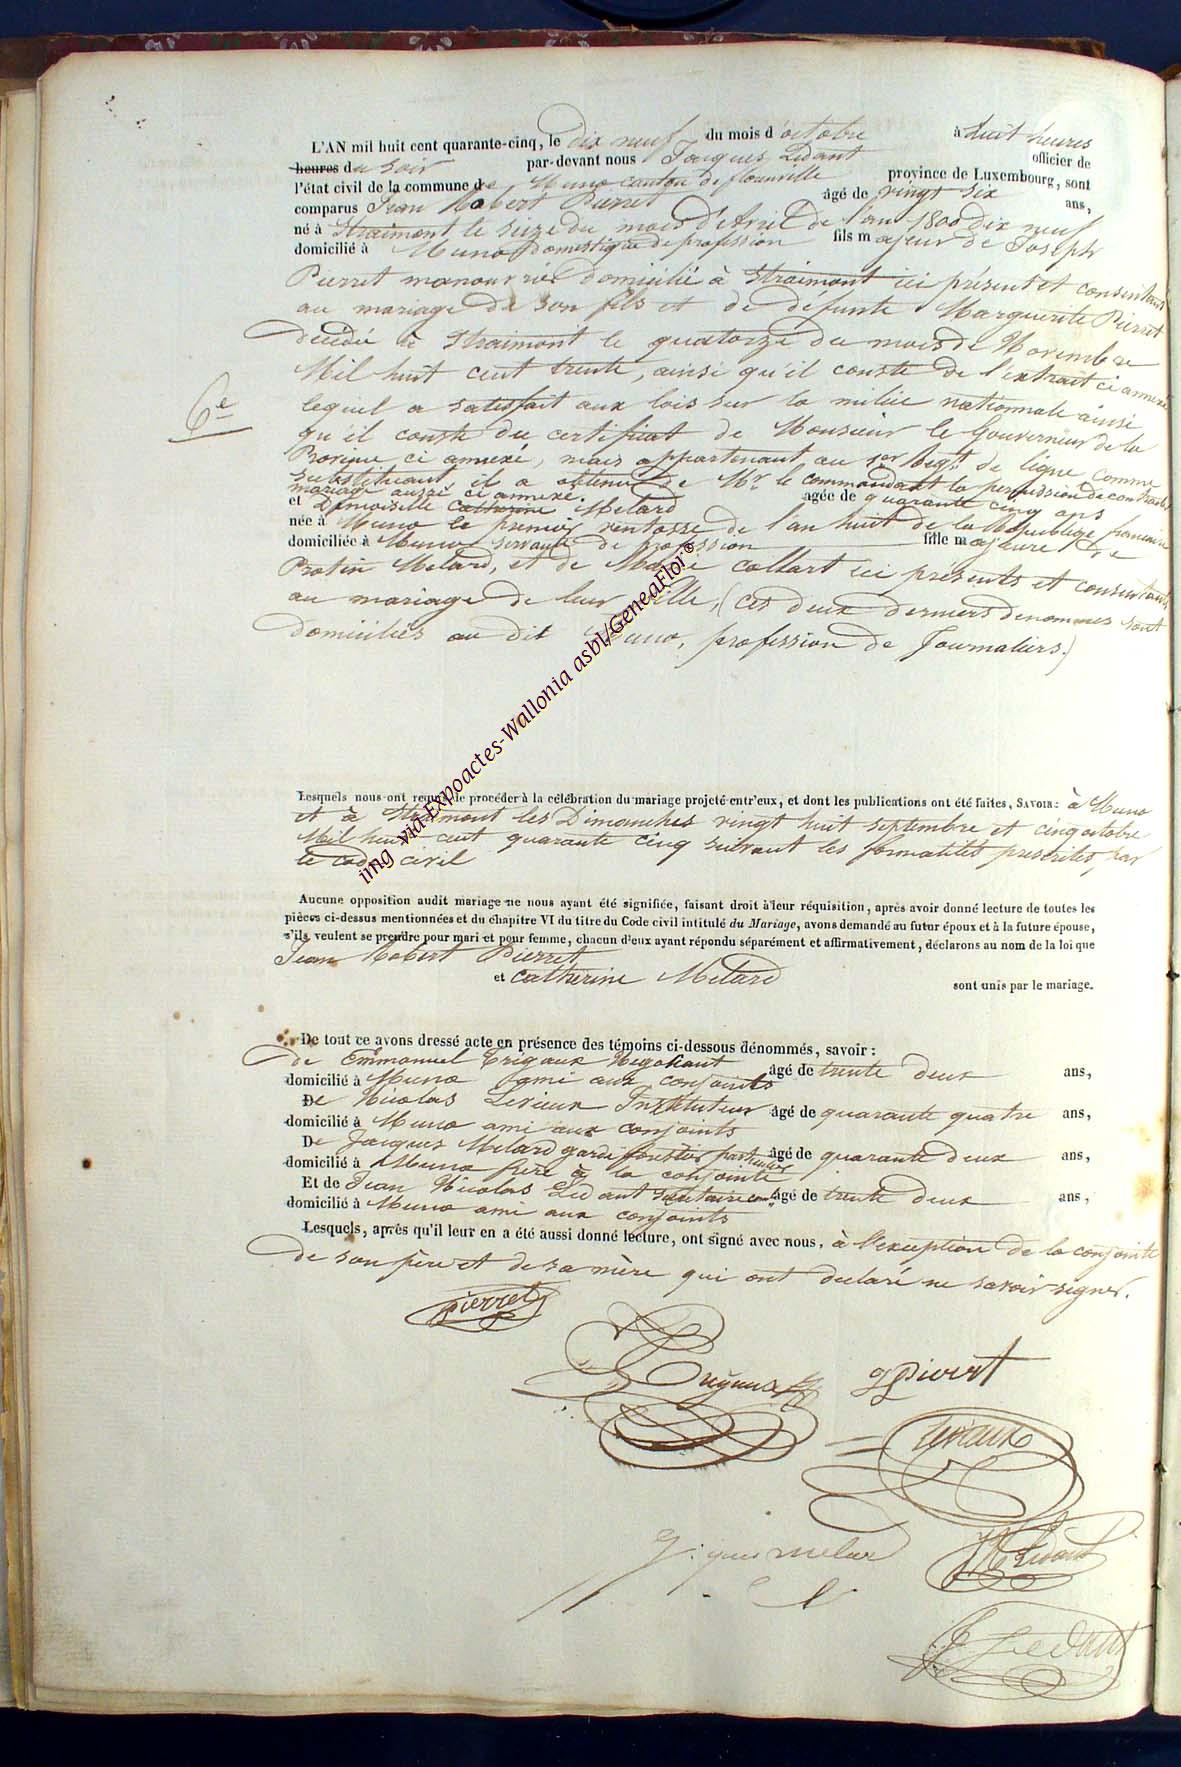 L'AN mil huit cent quarante-cinq, le dix neuf du mois d'octobre à huit heures
heures du soir par-devant nous Jacques Ledant officier de
l'état civil de la commune de Muno canton de florenville province de Luxembourg, sont
comparus Jean Robert Pierret âgé de vingt six ans,
né à Straimont le seize du mois d'Avril de l'an 1800 dix neuf
domicilié à Muno domestique de profession fils majeur de Joseph
Pierret manouvrier domicilié à Straimont ici présent et consentant
au mariage de son fils et de défunte Marguerite Pierret
décédé à Straimont le quatorze du mois de Novembre
Mil huit cent trente, ainsi qu'il conste de l'extrait ci annexé
6e
lequel a satisfait aux lois sur la milice nationnale ainsi
qu'il conste du certificat de Monsieur le Gouverneur de la
Province ci annexé, mais appartenant au 1er Regt de ligne comme
substituant il a obtenu de Mr le commandant la permission de contracter
mariage aussi ci annexé.
et Demoiselle Catherine Melard agée de quarante cinq ans
née à Muno le premier ventosse de l'an huit de la République francaise
domiciliée à Muno servante de profession fille majeure de
Protin Melard, et de Marie collart ici présents et consentants
au mariage de leur fille, (ces deux derniers denommés sont
domiciliés au dit Muno, profession de Journaliers.)
Lesquels nous ont requis de procéder à la célébration du mariage projeté entr'eux, et dont les publications ont été faites, SAVOIR: à Muno
et à Straimont les Dimanches vingt huit septembre et cinq octobre
Mil huit cent quarante cinq suivant les formalités prescrites, par
le code civil
Aucune opposition audit mariage ne nous ayant été signifiée, faisant droit à leur réquisition, après avoir donné lecture de toutes les
pièces ci-dessus mentionnées et du chapitre VI du titre du Code civil intitulé du Mariage, avons demandé au futur époux et à la future épouse,
s'ils veulent se prendre pour mari et pour femme, chacun d'eux ayant répondu séparément et affirmativement, déclarons au nom de la loi que
Jean Robert Pierret
et Catherine Melard sont unis par le mariage.
De tout ce avons dressé acte en présence des témoins ci-dessous dénommés, savoir:
de Emmanuel Trigaux Negotiant âgé de trente deux ans,
domicilié à Muno ami aux conjoints
De Nicolas Levieux Instituteur âgé de quarante quatre ans,
domicilié à Muno ami aux conjoints
De Jacques Melard garde forestier particulier âgé de quarante deux ans,
domicilié à Muno frère à la conjointe
Et de Jean Nicolas Ledant secretaire âgé de trente deux ans,
domicilié à Muno ami aux conjoints
Lesquels, après qu'il leur en a été aussi donné lecture, ont signé avec nous, à l'exception de la conjointe
de son père et de sa mère qui ont declaré ne savoir signer.
pierret
J pierret
JN Ledant
J Ledant
img via Expoactes-Wallonia asbl/GeneaFlor®